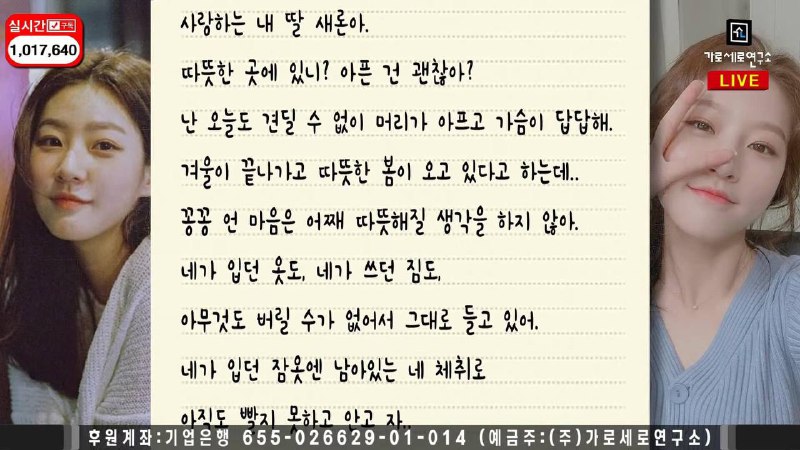 실시간 구독
1,017,640
가로세로연구소
LIVE
사랑하는 내 딸 새론아.
따뜻한 곳에 있니? 아픈 건 괜찮아?
난 오늘도 견딜 수 없이 머리가 아프고 가슴이 답답해.
겨울이 끝나가고 따뜻한 봄이 오고 있다고 하는데..
꽁꽁 언 마음은 어째 따뜻해질 생각을 하지 않아.
네가 입던 옷도, 네가 쓰던 짐도,
아무것도 버릴 수가 없어서 그대로 들고 있어.
네가 입던 잠옷엔 남아있는 네 체취로
아직도 빨지 못하고 안고 자..
후원계좌:기업은행 655-026629-01-014 (예금주:(주)가로세로연구소)